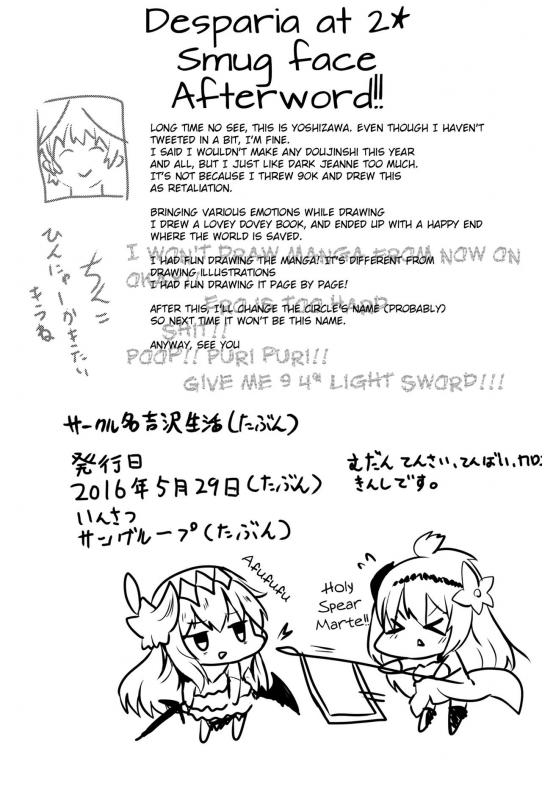 Desparia at 2*
Smug face
Afterword!!
LONG TIME NO SEE, THIS IS YOSHIZAWA. EVEN THOUGH I HAVEN'T
TWEETED IN A BIT, I'M FINE.
I SAID I WOULDN'T MAKE ANY DOUJINSHI THIS YEAR
AND ALL, BUT I JUST LIKE DARK JEANNE TOO MUCH.
IT'S NOT BECAUSE I THREW 90K AND DREW THIS
AS RETALIATION.
BRINGING VARIOUS EMOTIONS WHILE DRAWING
I DREW A LOVEY DOVEY BOOK, AND ENDED UP WITH A HAPPY END
WHERE THE WORLD IS SAVED.
I HAD FUN DRAWING THE MANGA! IT'S DIFFERENT FROM
DRAWING ILLUSTRATIONS
I HAD FUN DRAWING IT PAGE BY PAGE!
AFTER THIS, I'LL CHANGE THE CIRCLE'S NAME (PROBABLY)
SO NEXT TIME IT WON'T BE THIS NAME.
ANYWAY, SEE YOU
I WON'T DRAW MANGA FROM NOW ON
TOO HARD
SHIT!!
POOP!! PURI PURI!!
GIVE ME 9 4* LIGHT SWORD!!!
ちんこ
ひんにゅーかきたい
きうね
サークル名吉沢生活(たぶん)
発行日
2016年5月29日(たぶん)
いんさつ
サングループ(たぶん)
むだん てんさい、てんばい、
きんしです。
Afufufu
Holy
Spear
Marte!!